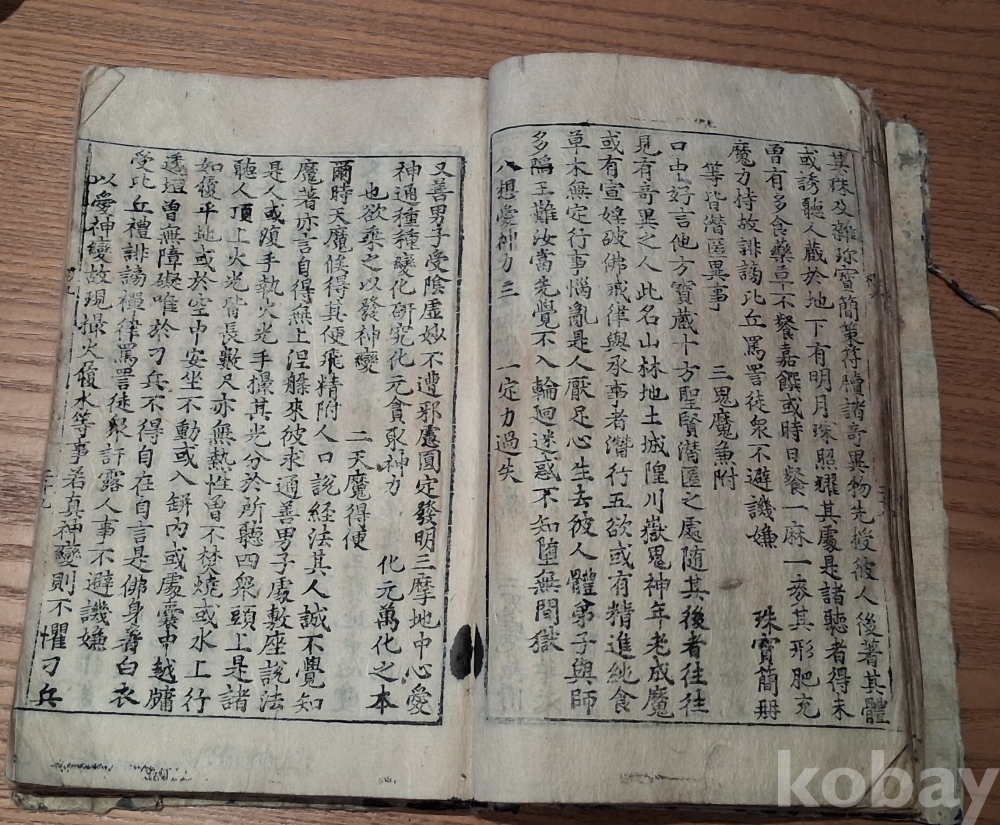 其珠及雜珍寶簡策符牘諸奇異物先授彼人後著其體
或誘聽人藏於地下有明月珠照耀其處是諸聽者得未
曾有多食藥草不餐嘉饌或時日餐一麻一麥其形肥充
魔力持故誹謗比丘罵詈徒衆不避譏嫌　珠寶簡冊
等皆潛匿異事　三鬼魔兼附
口中好言他方寶藏十方聖賢潛匿之處隨其後者往往
見有奇異之人此名山林地土城隍川嶽鬼神年老成魔
或有宣婬破佛戒律與承事者潛行五欲或有精進純食
草木無定行事惱亂是人厭足心生去彼人體弟子與師
多陷王難汝當先覺不入輪迴迷惑不知墮無間獄
八想愛神力三　一定力過失
又善男子受陰虛妙不遭邪慮圓定發明三摩地中心愛
神通種種變化研究化元貪取神力　化元萬化之本
也欲乘之以發神變　二天魔得便
爾時天魔候得其便飛精附人口說經法其人誠不覺知
魔著亦言自得無上涅槃來彼求通善男子處敷座說法
是人或復手執火光手撮其光分於所聽四衆頭上是諸
聽人頂上火光皆長數尺亦無熱性曾不焚燒或水上行
如履平地或於空中安坐不動或入缾內或處囊中越牖
透垣曾無障礙唯於刀兵不得自在自言是佛身著白衣
受比丘禮誹謗禪律罵詈徒衆訐露人事不避譏嫌
以愛神變故現撮火履水等事若真神變則不懼刀兵
kobay